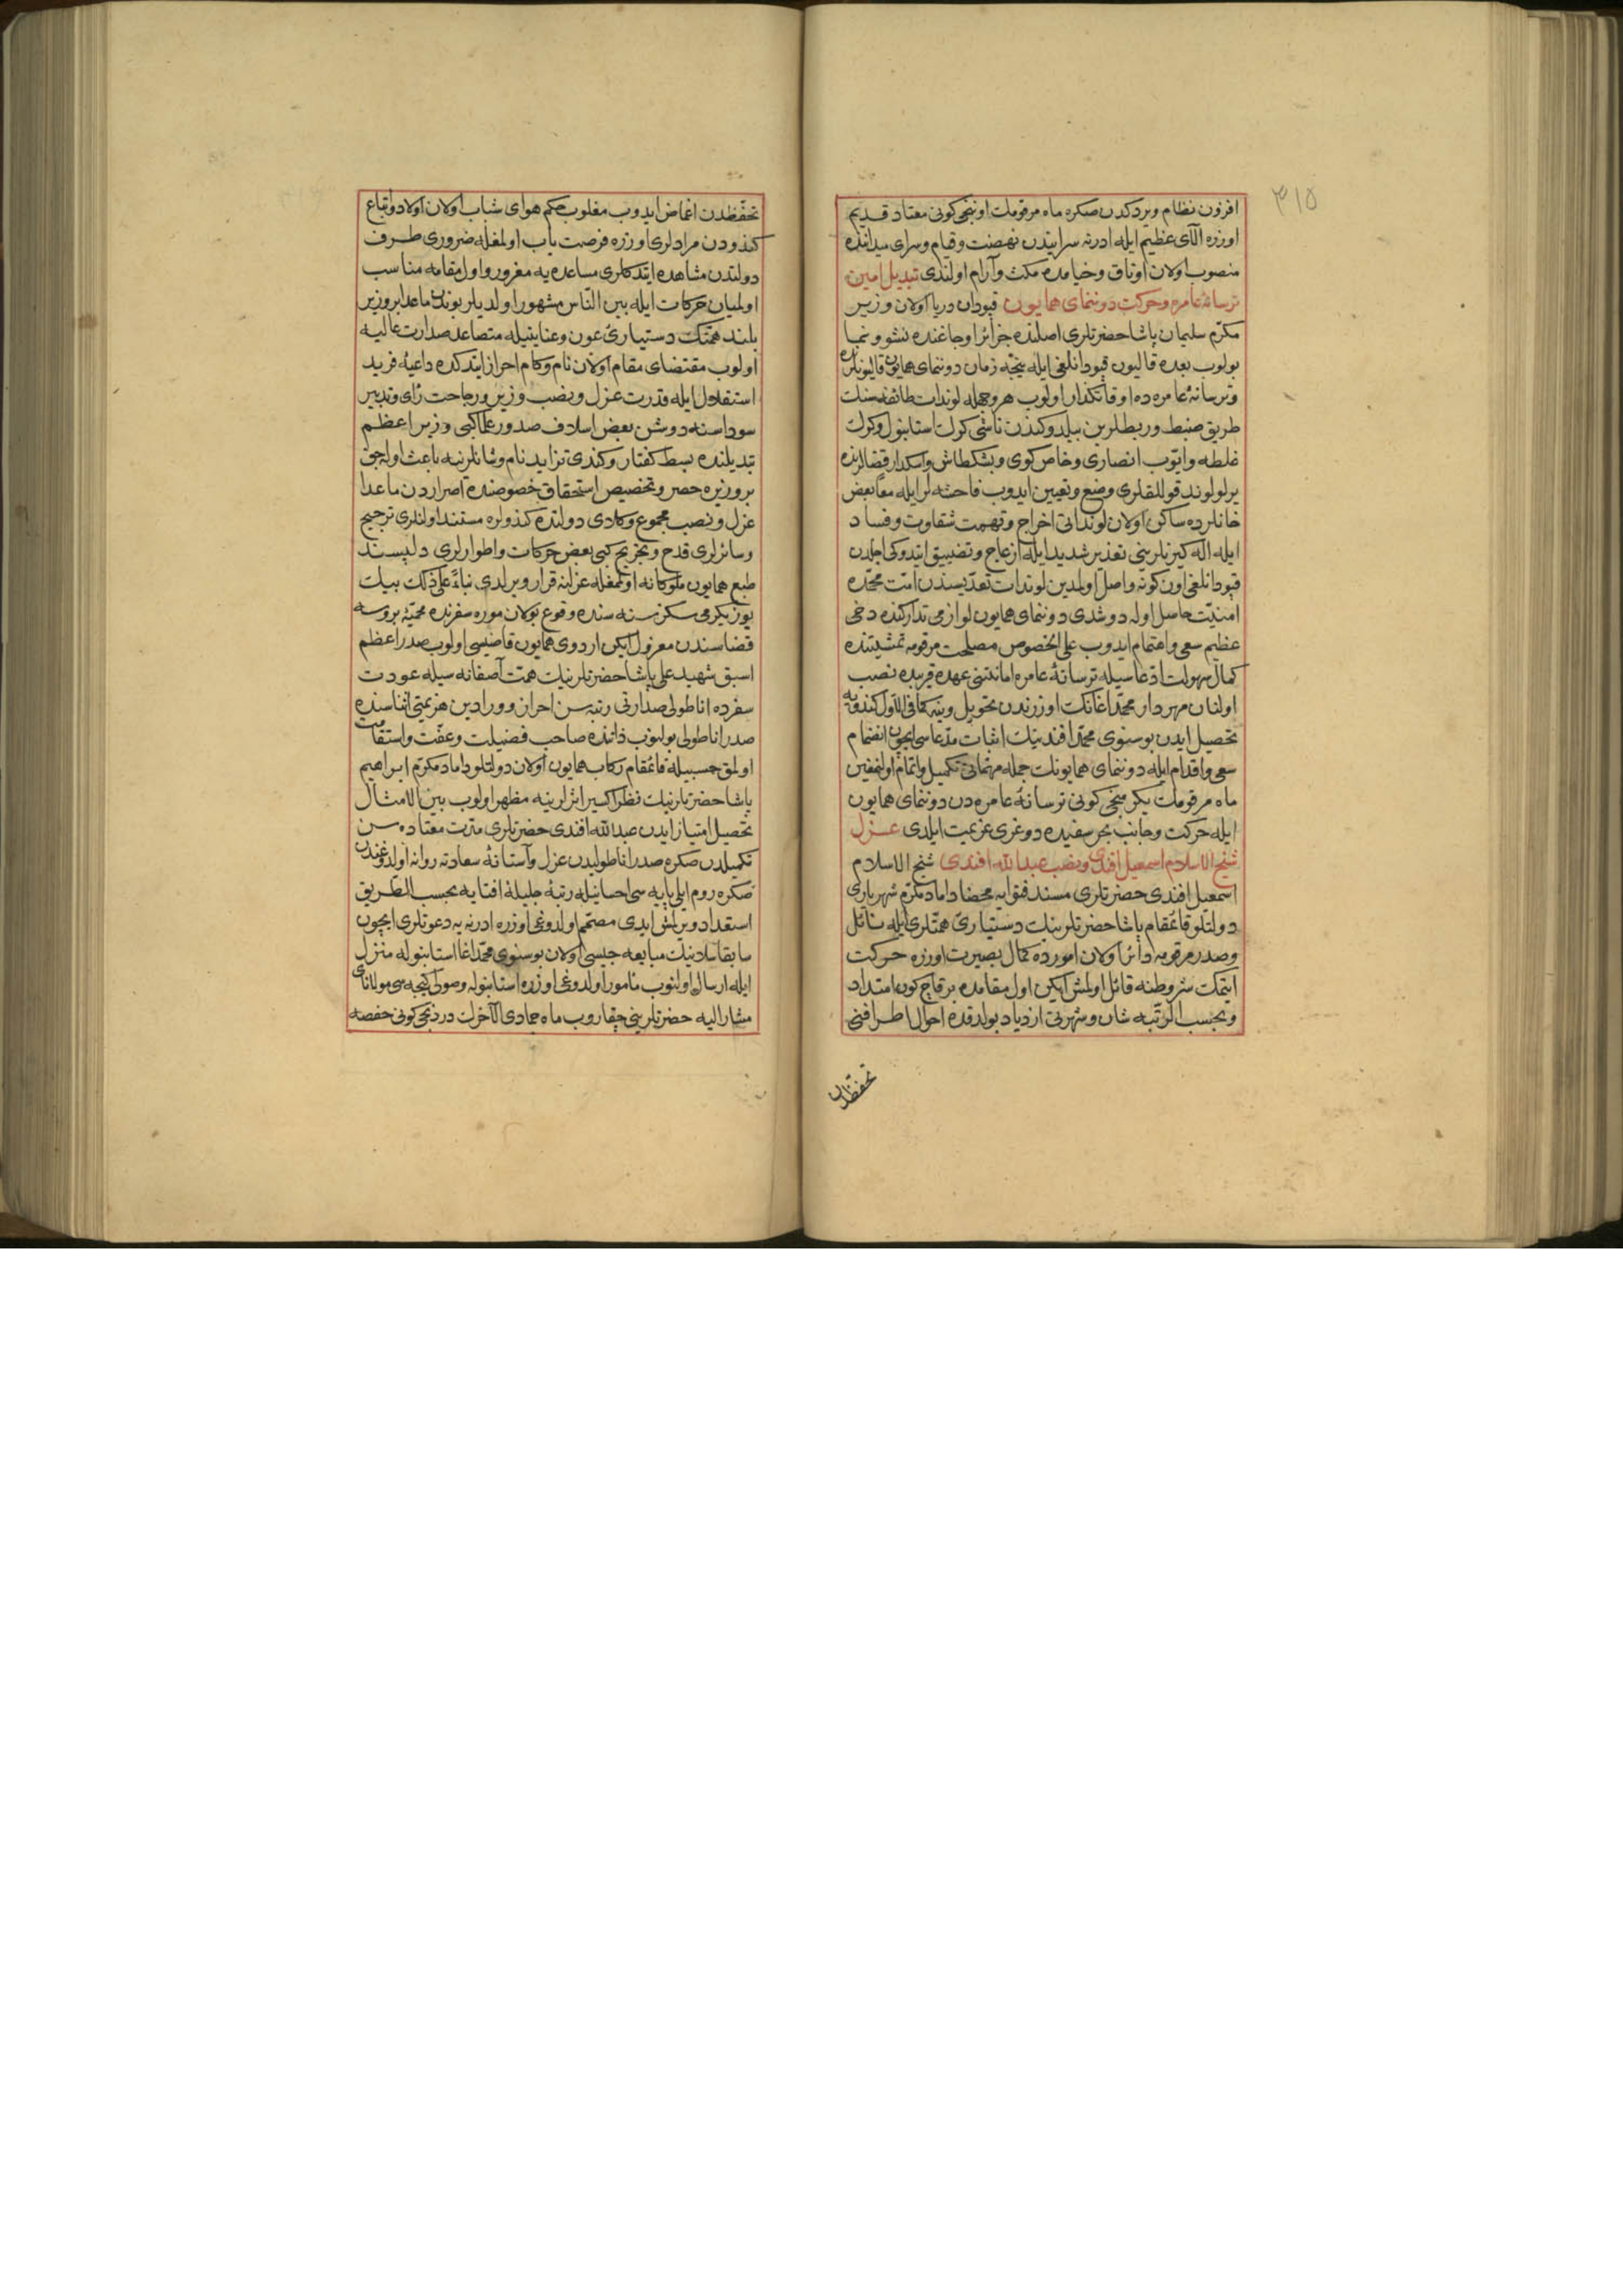 ٣١٥
افزون نظام ويردكدن صكره ماه مرقومك اوننجى كونى معتاد قديم
اوزره الاى عظيم ايله ادرنه سرايندن نهضت وقيام وسراى ميداننده
منصوب اولان اوتاق وخيامده مكث وآرام اولندى تبديل امين
ترسانهٔ عامره وحركت دوننماى همايون قپودان دريا اولان وزير
مكرم سليمان پاشا حضرتلرى اصلنده جزائر اوجاغنده نشو ونما
بولوب بعده قاليون قپودانلغى ايله نيجه زمان دوننماى همايون قاليونلرنده
وترسانهٔ عامره ده اوقاتكذار اولوب هر وجهله لوندات طائفه سنك
طريق ضبط وربطلرين بيلدوكندن ناشى كرك استانبول وكرك
غلطه وايوب انصارى وخاص كوى وبشكطاش واسكدار قضالرنده
ير ير لوند قوللقلرى وضع وتعيين ايدوب فاحشه لر ايله معا بعض
خانلرده ساكن اولان لونداتى اخراج وتهمت شقاوت وفساد
ايله اله كيرنلرينى تعذير شديد ايله ازعاج وتضييق ايتدوكى اجلدن
قپودانلغى اون كونه واصل اولمدين لوندات تعديسندن امت محمده
امنيت حاصل اوله دوشدى دوننماى همايون لوازمى تداركنده دخى
عظيم سعى واهتمام ايدوب على الخصوص مصلحت مرقومه تمشيتنده
كمال سهولت ادعاسيله ترسانهٔ عامره امانتنى عهده قريبده نصب
اولنان مهردار محمد اغانك اوزرندن تحويل وينه كما فى الاول كندويه
تحصيل ايدن بوسنوى محمد افندينك اثبات مدعاسى ايچون انضمام
سعى واقدام ايله دوننماى همايونك جمله مهماتى تكميل واتمام اولنمغين
ماه مرقومك يكرمنجى كونى ترسانهٔ عامره دن دوننماى همايون
ايله حركت وجانب بحر سفيده دوغرى عزيمت ايلدى عزل
شيخ الاسلام اسمعيل افندى ونصب عبدالله افندى شيخ الاسلام
اسمعيل افندى حضرتلرى مسند فتوايه محضا داماد مكرم شهريارى
دولتلو قائمقام پاشا حضرتلرينك دستيارئ همتلرى ايله نائل
وصدر مرقومه دائر اولان امورده كمال بصيرت اوزره حركت
ايتمك شروطنه قائل اولمش ايكن اول مقامده بر قاچ كون امتداد
وبحسب الرتبه شان وشهرتى ازدياد بولدقده احوال اطرافنى
تحفظدن
تحفظدن اغماض ايدوب مغلوب حكم هواى شباب اولان اولاد واتباع
كندودن مرادلرى اوزره فرصت ياب اولمغله ضرورى طرف
دولتدن مشاهده ايتدكلرى مساعده يه مغرور واول مقامه مناسب
اولميان حركات ايله بين الناس مشهور اولديلر بوندن ماعدا بر وزير
بلند همتك دستيارئ عون وعنايتيله متصاعد صدارت عاليه
اولوب مقتضاى مقام اولان نام وكام احراز ايتدكده داعيهٔ فريد
استقلال ايله قدرت عزل ونصب وزير ورجاحت راى وتدبير
سوداسنه دوشن بعض اسلاف صدور علما كبى وزير اعظم
تبديلنده بسط كفتار وكندى تزايد نام وشانلرنه باعث اوله جق
بر وزيره حصر وتخصيص استحقاق خصوصنده اصراردن ماعدا
عزل ونصب مجموع وكلادى دولتده كندولره مستند اولنلرى ترجيح
وسائرلرى قدح وتجريح كبى بعض حركات واطوارلرى دلپسند
طبع همايون ملوكانه اولمغله عزلنه قرار ويرلدى بناءً على ذلك بيك
يوز يكرمى سكز سنه سنده وقوع بولان موره سفرنده محميهٔ بروسه
قضاسندن معزول ايكن اردوى همايون قاضيسى اولوب صدر اعظم
اسبق شهيد على پاشا حضرتلرينك همت آصفانه سيله عودت
سفرده اناطولى صدارتى رتبه سن احراز وورادين هزيمتى اثناسنده
صدر اناطولى بولنوب ذاتنده صاحب فضيلت وعفت واستقامت
اولمق حسبيله قائمقام ركاب همايون اولان دولتلو داماد مكرم ابراهيم
پاشا حضرتلرينك نظر اكسير اثرلرينه مظهر اولوب بين الامثال
تحصيل امتياز ايدن عبدالله افندى حضرتلرى مدت معتاده سن
تكميلدن صكره صدر اناطوليدن عزل وآستانهٔ سعادته روانه اولدوغندن
صكره روم ايلى پايه سى احسانيله رتبهٔ جليلهٔ افتايه بحسب الطريق
استعداد ويرلمش ايدى مصمم اولدوغى اوزره ادرنه يه دعوتلرى ايچون
سابقا سلانيك مبايعه جيسى اولان بوسنوى محمد اغا استانبوله منزل
ايله ارسال اولنوب مامور اولدوغى اوزره استانبوله وصولى كيجه سى مولاناى
مشار اليه حضرتلرينى چقاروب ماه جمادى الآخرك دردنجى كونى حفصه